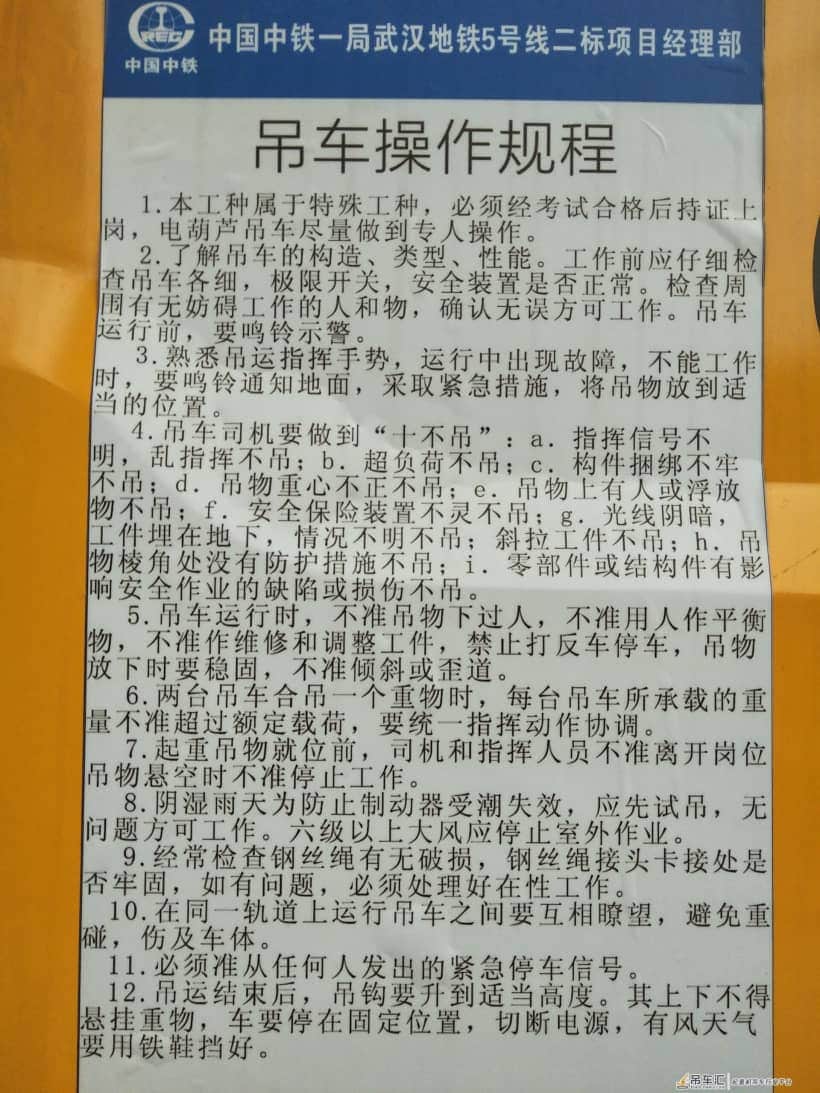 CREC
中国中铁
中国中铁一局武汉地铁5号线二标项目经理部
吊车操作规程
1.本工种属于特殊工种，必须经考试合格后持证上
岗，电葫芦吊车尽量做到专人操作。
2.了解吊车的构造、类型、性能。工作前应仔细检
查吊车各细，极限开关，安全装置是否正常。检查周
围有无妨碍工作的人和物，确认无误方可工作。吊车
运行前，要鸣铃示警。
3.熟悉吊运指挥手势，运行中出现故障，不能工作
时，要鸣铃通知地面，采取紧急措施，将吊物放到适
当的位置。
4.吊车司机要做到“十不吊”：a．指挥信号不
明，乱指挥不吊；b．超负荷不吊；c．构件捆绑不牢
不吊；d．吊物重心不正不吊；e．吊物上有人或浮放
物不吊；f．安全保险装置不灵不吊；g．光线阴暗，
工件埋在地下，情况不明不吊；斜拉工件不吊；h．吊
物棱角处没有防护措施不吊；i．零部件或结构件有影
响安全作业的缺陷或损伤不吊。
5.吊车运行时，不准吊物下过人，不准用人作平衡
物，不准作维修和调整工件，禁止打反车停车，吊物
放下时要稳固，不准倾斜或歪道。
6.两台吊车合吊一个重物时，每台吊车所承载的重
量不准超过额定载荷，要统一指挥动作协调。
7.起重吊物就位前，司机和指挥人员不准离开岗位
吊物悬空时不准停止工作。
8.阴湿雨天为防止制动器受潮失效，应先试吊，无
问题方可工作。六级以上大风应停止室外作业。
9.经常检查钢丝绳有无破损，钢丝绳接头卡接处是
否牢固，如有问题，必须处理好在性工作。
10.在同一轨道上运行吊车之间要互相瞭望，避免重
碰，伤及车体。
11.必须准从任何人发出的紧急停车信号。
12.吊运结束后，吊钩要升到适当高度。其上下不得
悬挂重物，车要停在固定位置，切断电源，有风天气
要用铁鞋挡好。
吊车汇